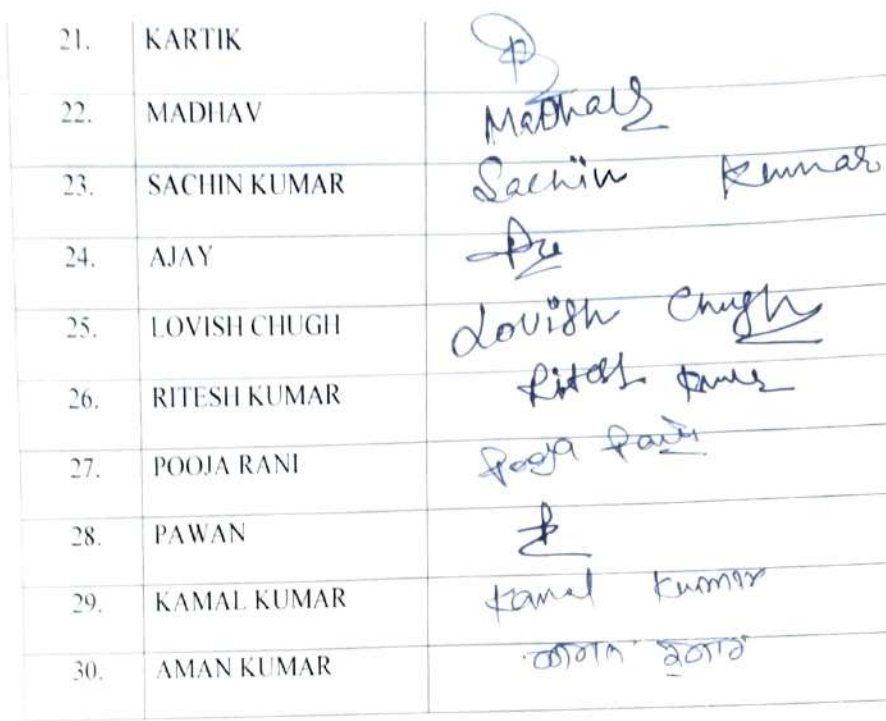 21. KARTIK
22. MADHAV Madhav
23. SACHIN KUMAR Sachin Kumar
24. AJAY
25. LOVISH CHUGH Lovish Chugh
26. RITESH KUMAR Ritesh Kumar
27. POOJA RANI Pooja Rani
28. PAWAN
29. KAMAL KUMAR Kamal Kumar
30. AMAN KUMAR